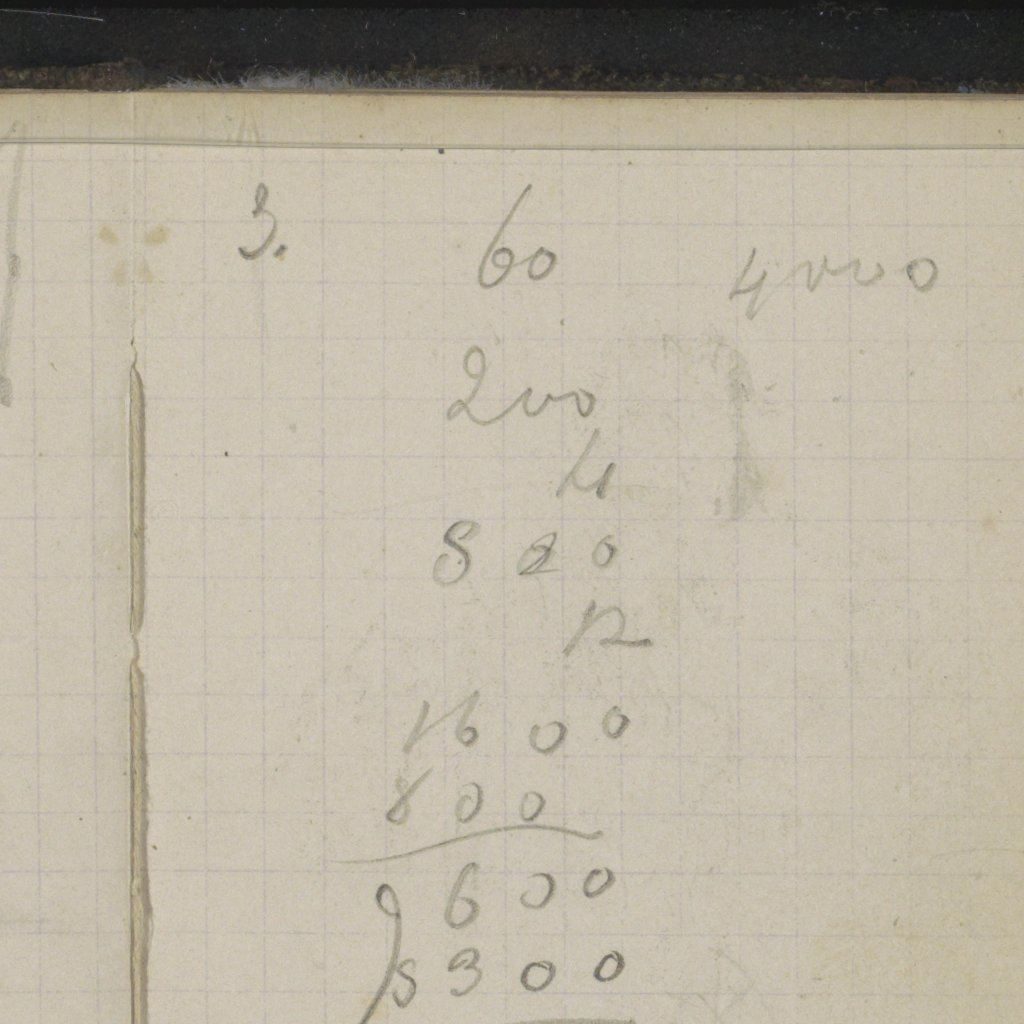 3. 60 4000
200
4
800
12
1600
800
9600
5300